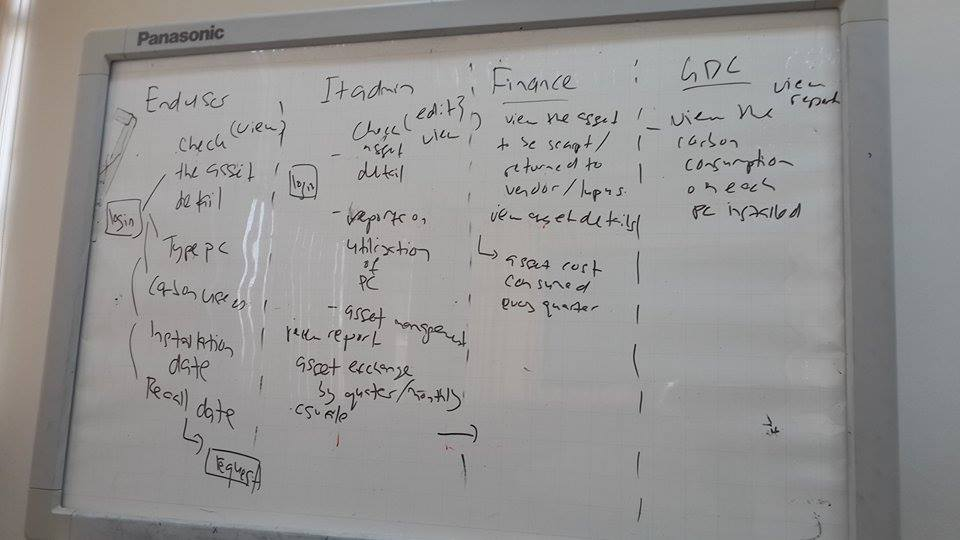 Panasonic
Enduser
check (view)
the asset
detail
login
Type pc
Carbon uses
Installation
date
Recall date
request
It admin
check (edit)
view
asset
detail
login
- reports on
utilization
of
PC
- asset management
view report
asset exchange
by quater/monthly
Finance
view the asset
to be script/
returned to
vendor/
view asset details
asset cost
consumed
every quarter
GDC
view
report
- view the
carbon
consumption
on each
PC installed